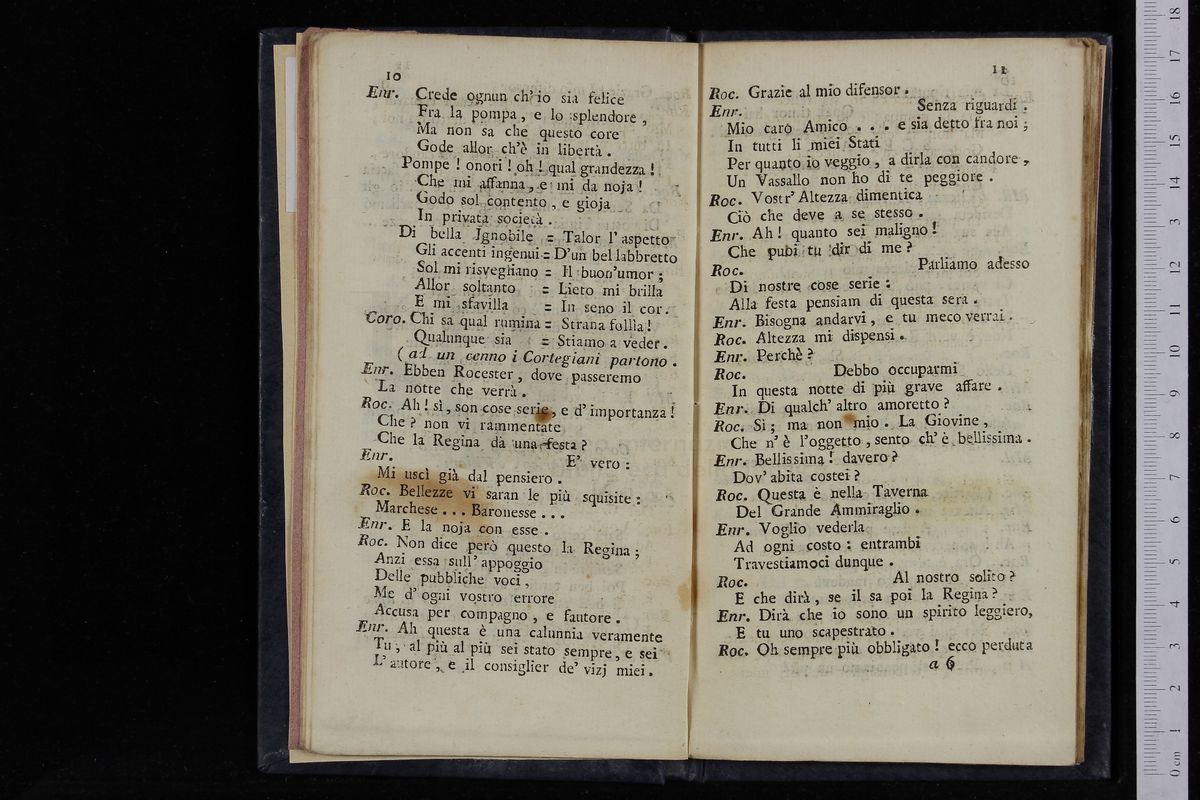 10
Enr. Crede ognun ch' io sia felice
Fra la pompa, e lo splendore,
Ma non sa che questo core
Gode allor ch'è in libertà.
Pompe! onori! oh! qual grandezza!
Che mi affanna, e mi da noja!
Godo sol contento, e gioja
In privata società.
Di bella Ignobile = Talor l'aspetto
Gli accenti ingenui = D'un bel labbretto
Sol mi risvegliano = Il buon'umor;
Allor soltanto = Lieto mi brilla
E mi sfavilla = In seno il cor.
Coro. Chi sa qual rumina = Strana follìa!
Qualunque sia = Stiamo a veder.
(ad un cenno i Cortegiani partono.
Enr. Ebben Rocester, dove passeremo
La notte che verrà.
Roc. Ah! sì, son cose serie, e d'importanza!
Che? non vi rammentate
Che la Regina dà una festa?
Enr. E' vero:
Mi uscì già dal pensiero.
Roc. Bellezze vi saran le più squisite:
Marchese... Baronesse...
Enr. E la noja con esse.
Roc. Non dice però questo la Regina;
Anzi essa sull' appoggio
Delle pubbliche voci,
Me d' ogni vostro errore
Accusa per compagno, e fautore.
Enr. Ah questa è una calunnia veramente
Tu, al più al più sei stato sempre, e sei
L'autore, e il consiglier de' vizj miei.
11
Roc. Grazie al mio difensor.
Enr. Senza riguardi.
Mio caro Amico... e sia detto fra noi;
In tutti li miei Stati
Per quanto io veggio, a dirla con candore,
Un Vassallo non ho di te peggiore.
Roc. Vostr' Altezza dimentica
Ciò che deve a se stesso.
Enr. Ah! quanto sei maligno!
Che puoi tu dir di me?
Roc. Parliamo adesso
Di nostre cose serie:
Alla festa pensiam di questa sera.
Enr. Bisogna andarvi, e tu meco verrai.
Roc. Altezza mi dispensi.
Enr. Perchè?
Roc. Debbo occuparmi
In questa notte di più grave affare.
Enr. Di qualch' altro amoretto?
Roc. Sì; ma non mio. La Giovine,
Che n' è l'oggetto, sento ch' è bellissima.
Enr. Bellissima! davero?
Dov' abita costei?
Roc. Questa è nella Taverna
Del Grande Ammiraglio.
Enr. Voglio vederla
Ad ogni costo: entrambi
Travestiamoci dunque.
Roc. Al nostro solito?
E che dirà, se il sa poi la Regina?
Enr. Dirà che io sono un spirito leggiero,
E tu uno scapestrato.
Roc. Oh sempre più obbligato! ecco perduta
a 6
0 cm 1 2 3 4 5 6 7 8 9 10 11 12 13 14 15 16 17 18